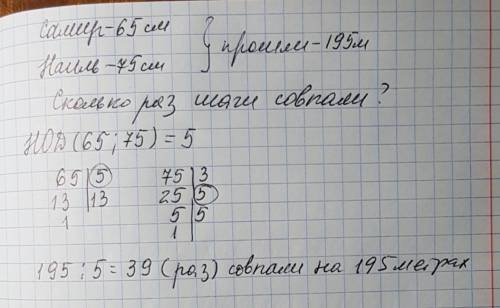 Самир-65см
Наиль-75см } прошли-195м
Сколько раз шаги совпали?
НОД(65;75)=5
65|5 75|3
13|13 25|5
1 5|5
1
195:5=39(раз) совпали на 195метрах